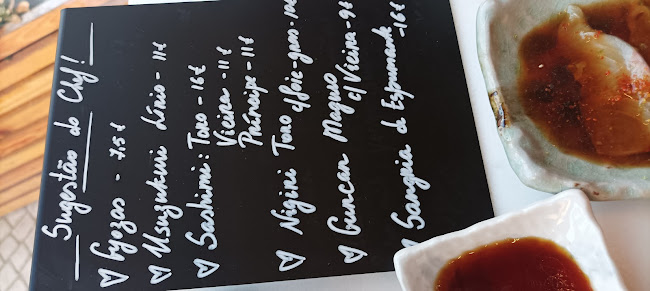 Sugestão do Chef!
♡ Gyozas - 7.5€
♡ Usuzukuri Lírio - 11€
♡ Sashimi: Toro - 16€
Vieira - 11€
Príncipe - 11€
♡ Nigiri Toro c/ foie-gras -
♡ Guncan Maguro
c/ Vieira - 9€
♡ Sangria de Espumante - 16€